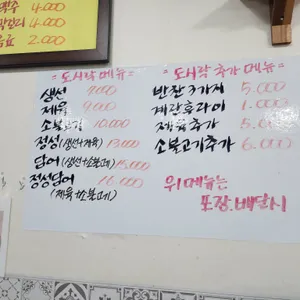 4.000
4.000
2.000
= 도시락 메뉴 =
생선 9.000
제육 9.000
소불고기 10.000
정성(생선+제육) 13.000
담어(생선+소불고기) 15.000
정성담어 16.000
(제육+소불고기)
= 도시락 추가 메뉴 =
반찬3가지 5.000
계란후라이 1.000
제육추가 5.000
소불고기추가 6.000
위 메뉴는
포장.배달시